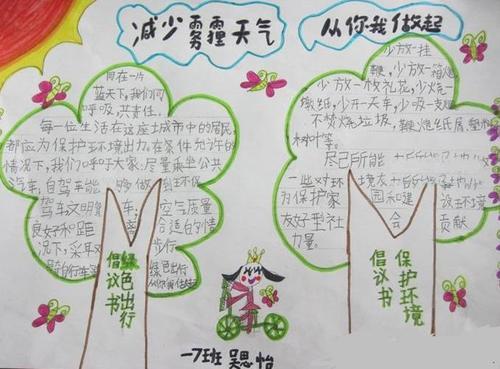 减少雾霾天气
从你我做起
同在一片
蓝天下,我们同
呼吸,共责任。
每一位生活在这座城市中的居民
都应为保护环境出力在条件允许的
情况下,我们呼吁大家:尽量乘坐公共
汽车,自驾车能够做到环保
驾车文明 车; 空气质量
良好和距 合适的情
况下,采用 步行
绿色出行
少放一挂
鞭,少放一箱炮
少放一枚礼花,少烧一
墩纸,少开一天车,少吸一支烟
不焚烧垃圾,
树叶等。
尽己所能
一些对环境
为保护家园
友好型社会 贡献
力量
倡议书
绿色出行
倡议书
保护环境
一7班 吴思怡